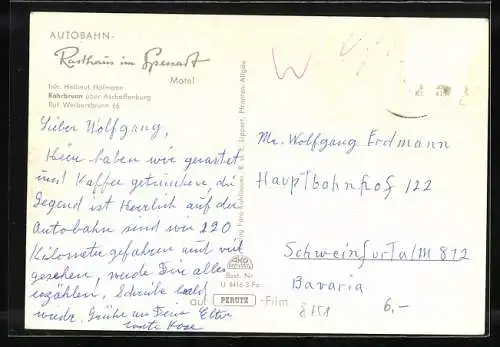 AUTOBAHN-
Rasthaus im Spessart
Motel
Inh. Hellmut Hofmann
Rohrbrunn über Aschaffenburg
Ruf Weibersbrunn 66
Lieber Wolfgang,
Hier haben wir gerastet
und Kaffee getrunken, die
Gegend ist Herrlich auf der
Autobahn sind wir 220
Kilometer gefahren und viel
gesehen, werde Dir alles
erzählen! Schreibe bald
wieder. Grüße an Deine Eltern
Best. Nr.
U 8416-3 Fa
auf PERUTZ-Film
W
Mr. Wolfgang Erdmann
Hauptbahnhof 122
Schweinfurt a/M 872
Bavaria
8151
6,-